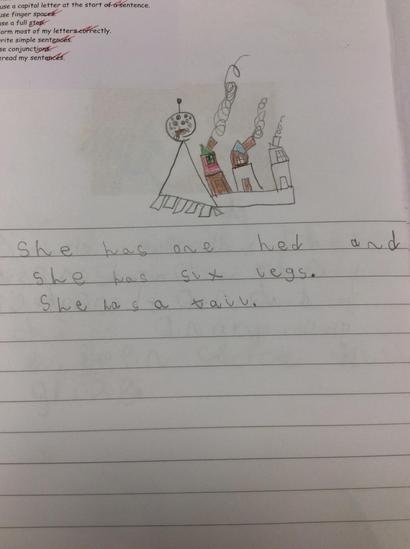 use a capital letter at the start of a sentence.
use finger spaces.
use a full stop.
orm most of my letters correctly.
rite simple sentences.
se conjunctions.
eread my sentences.
She has one hed and
she has six legs.
She has a tail.